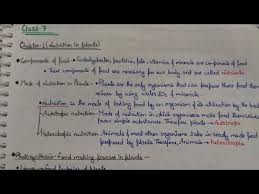 Class-7
Chapter-1 (Nutrition in plants)
Components of food → Carbohydrates, proteins, fats, vitamins & minerals are components of food
These components of food are necessary for our body and are called nutrients
Mode of Nutrition in Plants → Plants are the only organisms that can prepare there food them
selves by using water, CO2 & minerals.
Nutrition is the mode of taking food by an organism & its utilisation by the body
Autotrophic Nutrition → Mode of nutrition in which organisms make food themselves
from simple substances. Therefore plants → Autotrophs
Heterotrophic nutrition → Animals & most other organisms take in ready made food
prepared by plants. Therefore, Animals → heterotrophs
Photosynthesis - Food making process in plants -